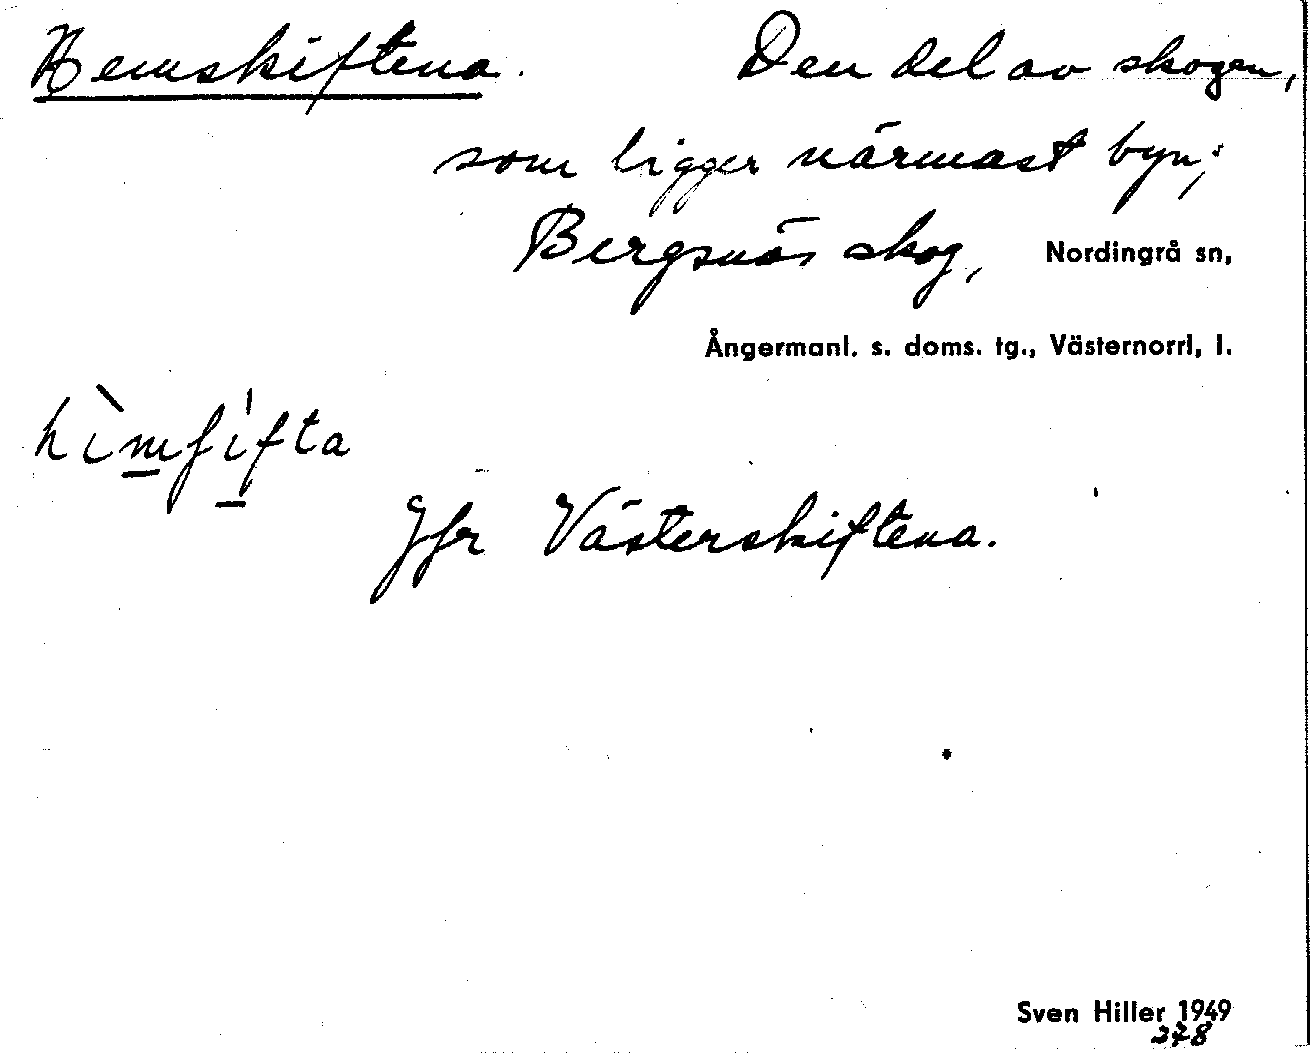 Hemskiftena. Den del av skogen,
som ligger närmast byn;
Bergsnäs skog, Nordingrå sn,
Ångermanl. s. doms. tg., Västernorrl. l.
hìmʃìfta
Jfr Västerskiftena.
Sven Hiller 1949
378